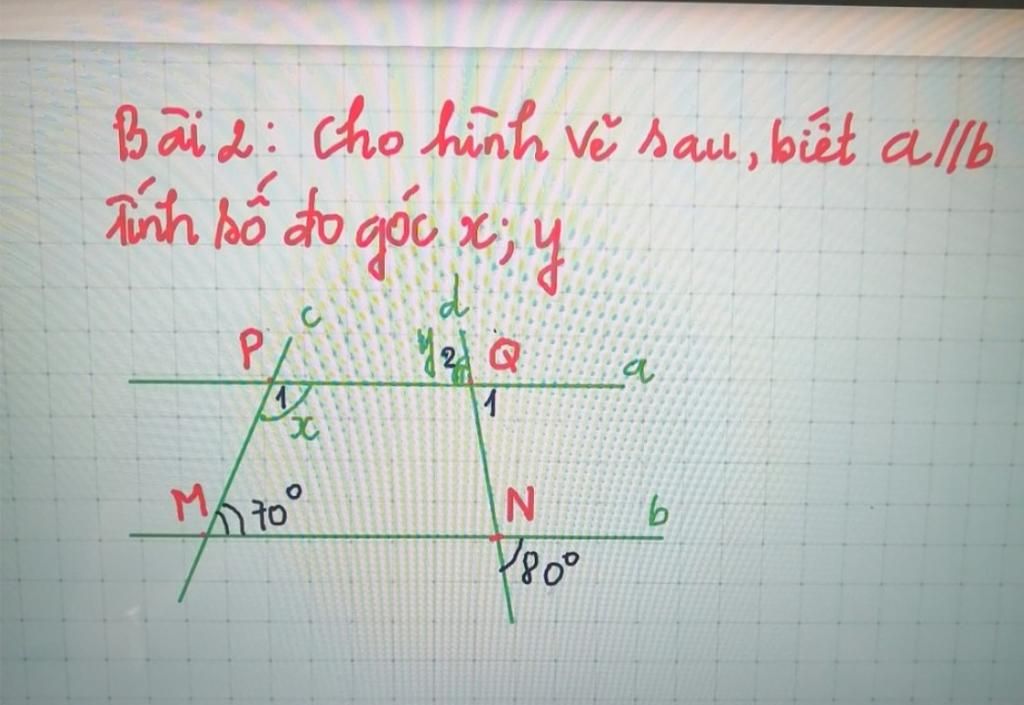 Bài 2: Cho hình vẽ sau, biết a//b
Tính số đo góc x; y
c
d
P
y 2 Q
a
1
x
1
M 70°
N
b
80°